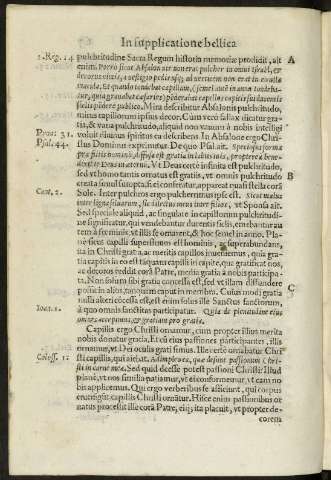 In supplicatione bellica
2. Reg. 14. pulchritudine Sacra Regum historia memoriæ prodidit, ait A
enim: Porro sicut Absalon vir non erat pulcher in omni Israël, &
decorus nimis, a vestigio pedis vsq; ad verticem non erat in eo vlla
macula. Et quando tondebat capillum, (semel autē in anno tondeba-
tur, quia grauabat cæsaries) ponderabat capillos capitis sui ducentis
siclis pondere publico. Mira describitur Absalonis pulchritudo,
minus capillorum ipsius decor. Cùm verò fallax dicatur gra-
Prou. 31. tia, & vana pulchritudo, aliquid non vanum à nobis intelligi
Psal. 44. voluit diuinus spiritus ea describens. In Absalone ergo Chri-
stus Dominus exprimitur. De quo Psal. ait. Speciosus forma
præ filijs hominū, diffusa est gratia in labijs tuis, propterea bene-
dixit te Deus in æternū. Vt Deus certè infinita est pulchritudo,
sed vt homo tantis ornatus est gratijs, vt omnis pulchritudo B
creata simul sumpta, si ei conferatur, appareat quasi stella corā
Cant. 2. Sole. Inter pulchros ergo pulcherrimus ipse est. Sicut malus
inter ligna siluarum, sic dilectus meus inter filios, vt Sponsa ait.
Sed speciale aliquid, ac singulare in capillorum pulchritudi-
ne significatur, qui vendebantur ducentis siclis,
in Christi gratia, ac merita capilli
capitis
decoros reddit corā Patre, merita gratia à nobis participa-
ta. Non solum sibi gratia concessa est, sed vt illam diffundere
posset in alios, tanquam caput in membra. Cuius modi gratia C
nulli alteri cōcessa est, est enim solus ille Sanctus sanctorum,
Ioan. 1. à quo omnis sanctitas participatur. Quia de plenitudine eius
omnes accepimus, & gratiam pro gratia.
Capillis ergo Christi ornamur, cum propter illius merita
nobis donatur gratia. Et cū eius passiones participantes, illis
ornamur, vt Deo oculis grati simus. Ille certè ornabatur Chri
Coloss. 1. sti capillis, qui aiebat. Adimpleo ea, quæ desunt passionum Chri-
sti in carne mea. Sed quid deesse potest passioni Christi? Illud
planè, vt nos similia patiamur, vt ei conformemur, vt eam no
bis applicemus. Qui ergo verberibus se afficiunt, qui corpus
Christi ornātur. Hisce enim passionibus or
natus procestit ille corā Patre, eiq; ita placuit, vt propter de-
corem